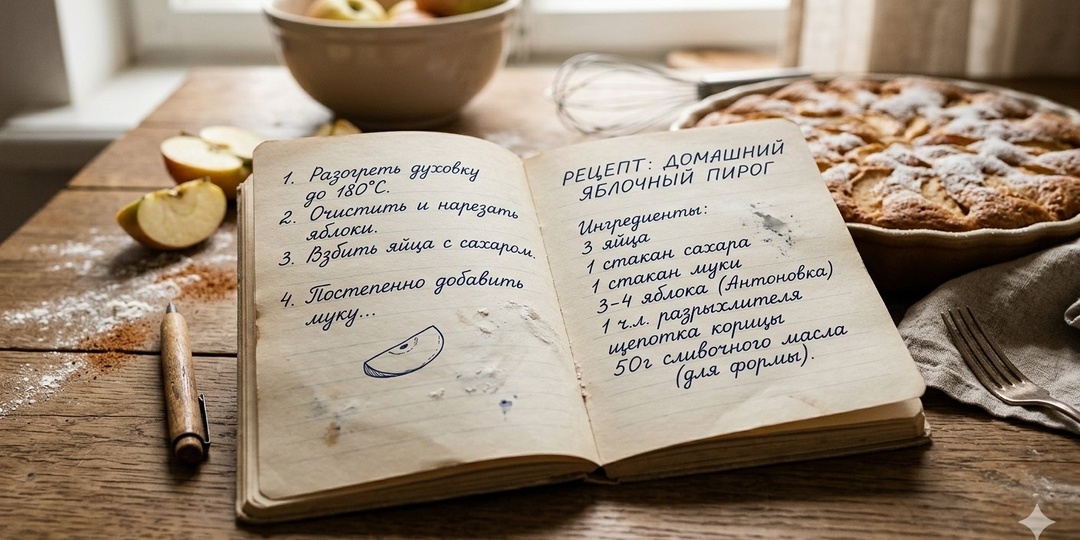 1. Разогреть духовку
до 180°C.
2. Очистить и нарезать
яблоки.
3. Взбить яйца с сахаром.
4. Постепенно добавить
муку...
РЕЦЕПТ: ДОМАШНИЙ
ЯБЛОЧНЫЙ ПИРОГ
Ингредиенты:
3 яйца
1 стакан сахара
1 стакан муки
3-4 яблока (Антоновка)
1 ч.л. разрыхлителя
щепотка корицы
50г сливочного масла
(для формы).